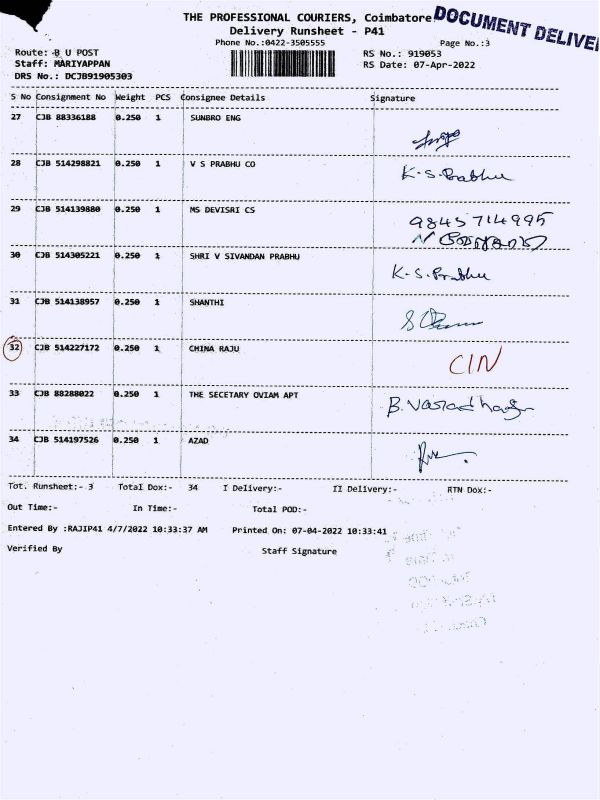 THE PROFESSIONAL COURIERS, Coimbatore
DOCUMENT DELIVE
Delivery Runsheet - P41
Phone No.:0422-3505555
Page No.:3
Route: B U POST
RS No.: 919053
Staff: MARIYAPPAN
RS Date: 07-Apr-2022
DRS No.: DCJB91905303
S No Consignment No Weight PCS Consignee Details Signature
27 CJB 88336188 0.250 1 SUNBRO ENG
28 CJB 514298821 0.250 1 V S PRABHU CO
K.S.Prabhu
29 CJB 514139880 0.250 1 MS DEVISRI CS
9845714995
30 CJB 514305221 0.250 1 SHRI V SIVANDAN PRABHU
K.S.Prabhu
31 CJB 514138957 0.250 1 SHANTHI
32 CJB 514227172 0.250 1 CHINA RAJU
CIN
33 CJB 88288022 0.250 1 THE SECETARY OVIAM APT
34 CJB 514197526 0.250 1 AZAD
Tot. Runsheet:- 3 Total Dox:- 34 I Delivery:- II Delivery:- RTN Dox:-
Out Time:- In Time:- Total POD:-
Entered By :RAJIP41 4/7/2022 10:33:37 AM Printed On: 07-04-2022 10:33:41
Verified By Staff Signature